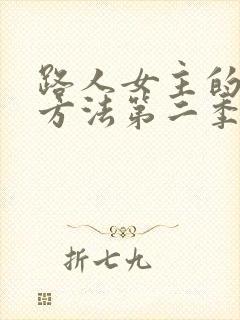 路人女主的
方法第二季
折七九